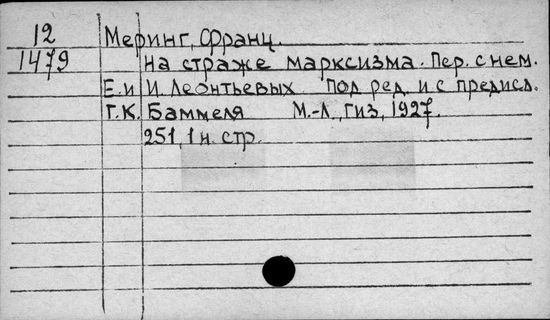 12 Меринг, Франц.
1479 На страже марксизма. Пер. с нем.
Е. и И. Леонтьевых под ред. и с предисл.
Г.К. Баммеля М.-Л., Гиз, 1927.
251, 1 н. стр.